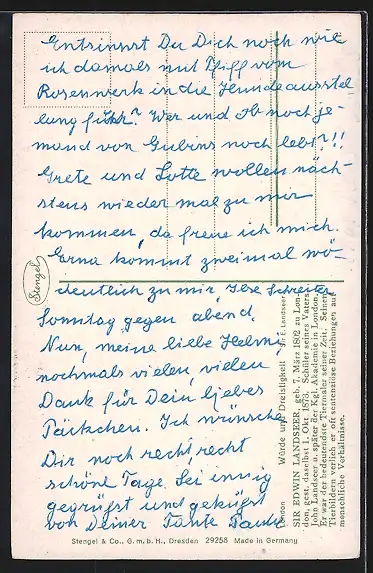 Entsinnst Du Dich noch wie
ich damals mit Pfiff vom
Rosenwerk in die Hundeausstel-
lung fuhr? Wer und ob noch je-
mand von Gubins noch lebt?!!
Grete und Lotte wollen näch-
stens wieder mal zu mir
kommen, da freue ich mich.
Erna kommt zweimal wö-
chentlich zu mir, Ilse Schreiter
Sonntag gegen abend.
Nun, meine liebe Helmi,
nochmals vielen, vielen
Dank für Dein liebes
Päckchen. Ich wünsche
Dir noch recht, recht
schöne Tage. Sei innig
gegrüßt und geküßt
von Deiner Tante Paula
Stengel
London Würde und Dreistigkeit Sir E. Landseer
SIR EDWIN LANDSEER, geb. 7. März 1802 zu Lon-
don, gest. daselbst 1. Okt. 1873. Schüler seines Vaters
John Landseer u. später der Kgl. Akademie in London.
Er war der bedeutendste Tiermaler seiner Zeit. Seinen
Tierbildern verlieh er oft sentenziöse Beziehungen auf
menschliche Verhältnisse.
Stengel & Co., G. m. b. H., Dresden 29258 Made in Germany